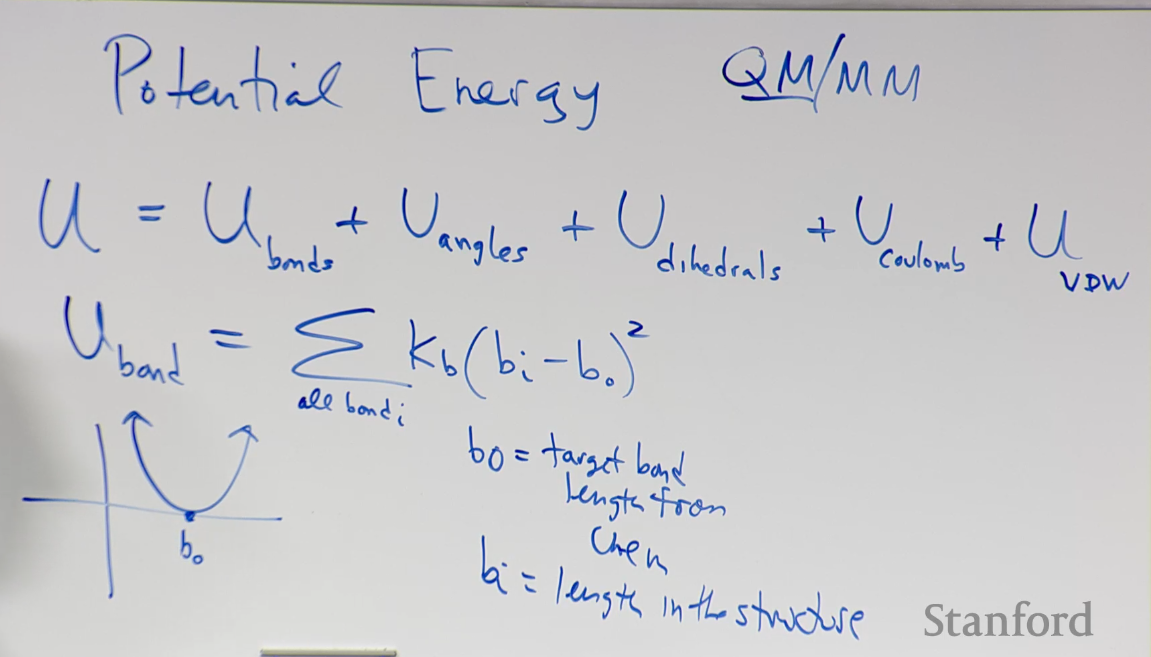 Potential Energy QM/MM
U = U bonds + U angles + U dihedrals + U Coulomb + U VDW
U bond = Σ k_b (b_i - b_0)²
all bond i
b_0 = target bond
length from
chem
b_0
b_i = length in the structure
Stanford